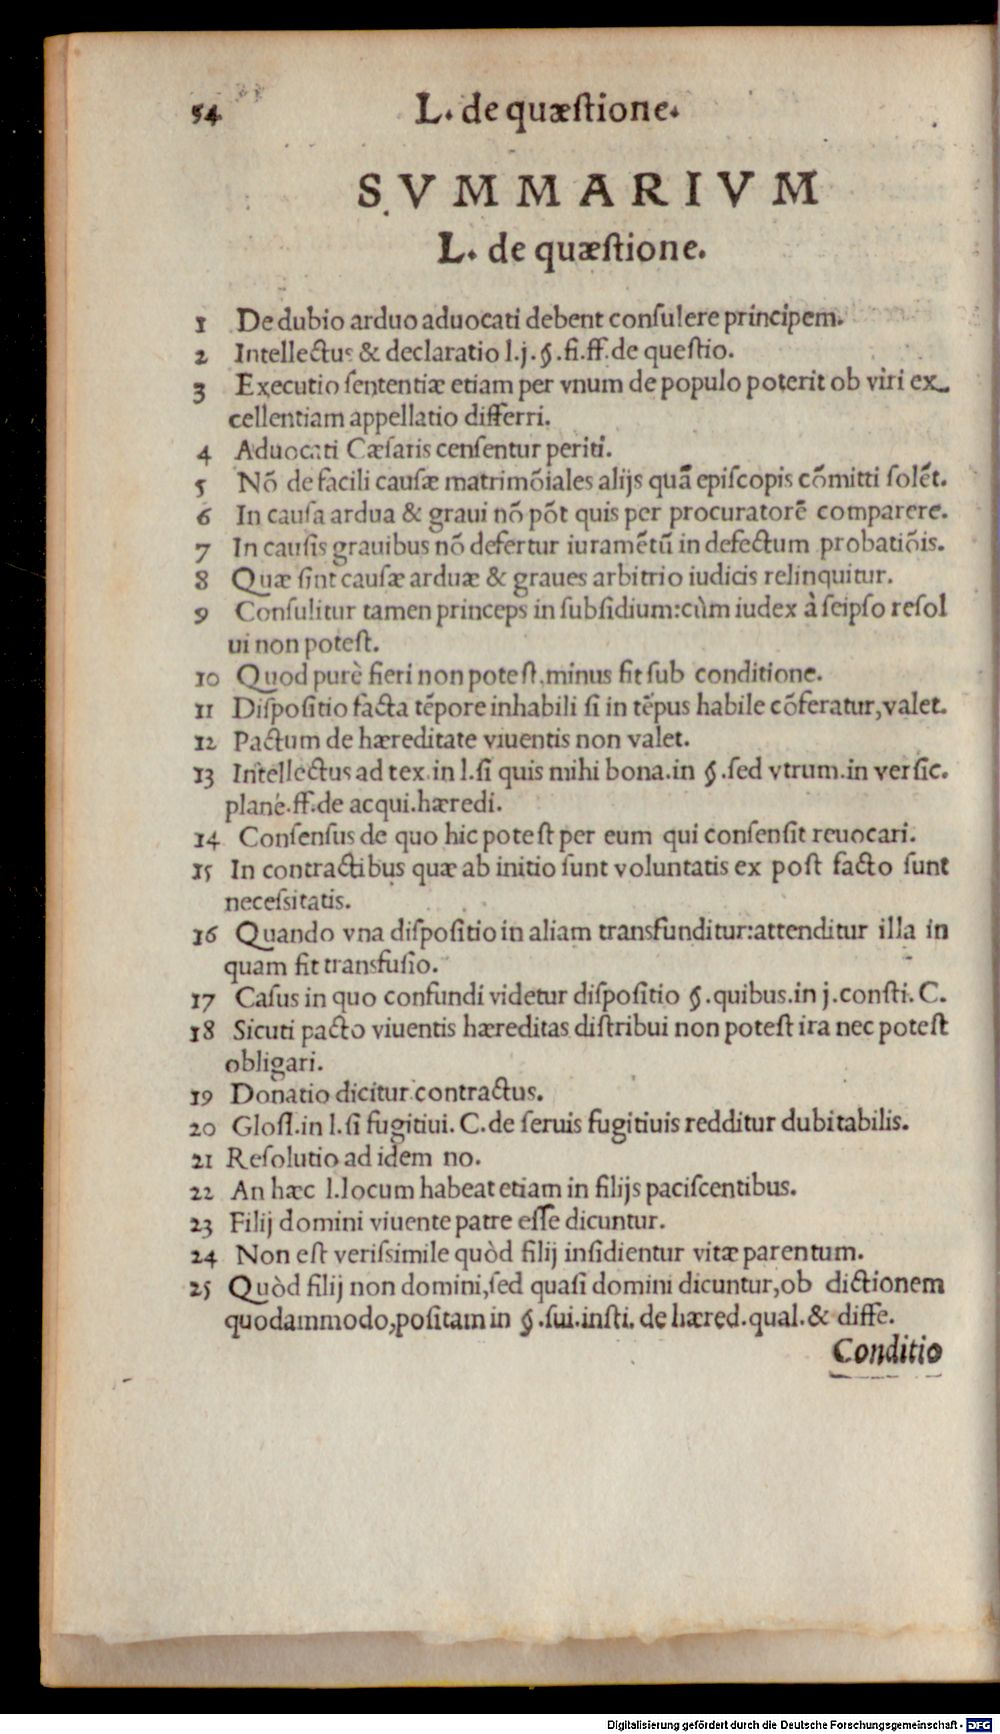 54 L. de quæſtione.
SVMMARIVM
L. de quæſtione.
1 De dubio arduo aduocati debent conſulere principem.
2 Intellectus & declaratio l.j.§.fi.ff.de queſtio.
3 Executio ſententiæ etiam per vnum de populo poterit ob viri ex-
cellentiam appellatio differri.
4 Aduocati Cæſaris cenſentur periti.
5 Nō de facili cauſæ matrimōiales alijs quā epiſcopis cōmitti ſolēt.
6 In cauſa ardua & graui nō pōt quis per procuratorē comparere.
7 In cauſis grauibus nō defertur iuramētū in defectum probatiōis.
8 Quæ ſint cauſæ arduæ & graues arbitrio iudicis relinquitur.
9 Conſulitur tamen princeps in ſubſidium:cùm iudex à ſeipſo reſol
ui non poteſt.
10 Quod purè fieri non poteſt,minus fit ſub conditione.
11 Diſpoſitio facta tēpore inhabili ſi in tēpus habile cōferatur,valet.
12 Pactum de hæreditate viuentis non valet.
13 Intellectus ad tex.in l.ſi quis mihi bona.in §.ſed vtrum.in verſic.
plane.ff.de acqui.hæredi.
14 Conſenſus de quo hic poteſt per eum qui conſenſit reuocari.
15 In contractibus quæ ab initio ſunt voluntatis ex poſt facto ſunt
neceſsitatis.
16 Quando vna diſpoſitio in aliam transfunditur:attenditur illa in
quam fit transfuſio.
17 Caſus in quo confundi videtur diſpoſitio §.quibus.in j.conſti. C.
18 Sicuti pacto viuentis hæreditas diſtribui non poteſt ita nec poteſt
obligari.
19 Donatio dicitur contractus.
20 Gloſſ.in l.ſi fugitiui. C.de ſeruis fugitiuis redditur dubitabilis.
21 Reſolutio ad idem no.
22 An hæc l.locum habeat etiam in filijs paciſcentibus.
23 Filij domini viuente patre eſſe dicuntur.
24 Non eſt veriſsimile quòd filij inſidientur vitæ parentum.
25 Quòd filij non domini,ſed quaſi domini dicuntur,ob dictionem
quodammodo,poſitam in §.ſui.inſti. de hæred.qual.& diffe.
Conditio
Digitalisierung gefördert durch die Deutsche Forschungsgemeinschaft - DFG